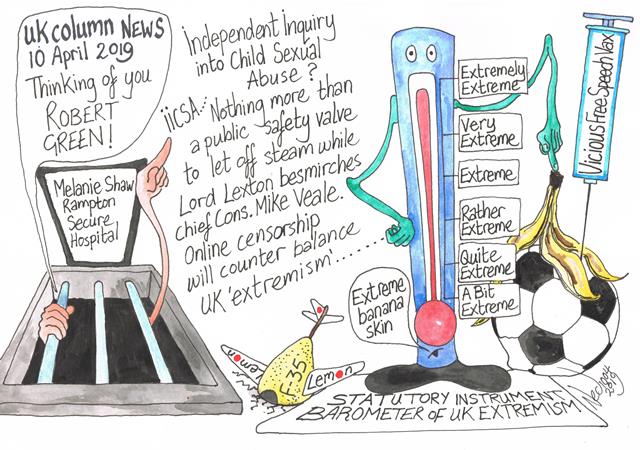 UK COLUMN NEWS
10 April 2019
Thinking of you
ROBERT
GREEN!
Melanie Shaw
Rampton
Secure
Hospital
Independent Inquiry
into Child Sexual
Abuse?
iiCSA: Nothing more than
a public safety valve
to let off steam while
Lord Lexton besmirches
Chief Cons. Mike Veale.
Online censorship
will counter balance
UK 'extremism'........
Extremely
Extreme
Very
Extreme
Extreme
Rather
Extreme
Quite
Extreme
A Bit
Extreme
Extreme
banana
skin
Vicious Free Speech Vax
Lemon
F35
Lemon
STATUTORY INSTRUMENT
BAROMETER OF UK EXTREMISM
2019